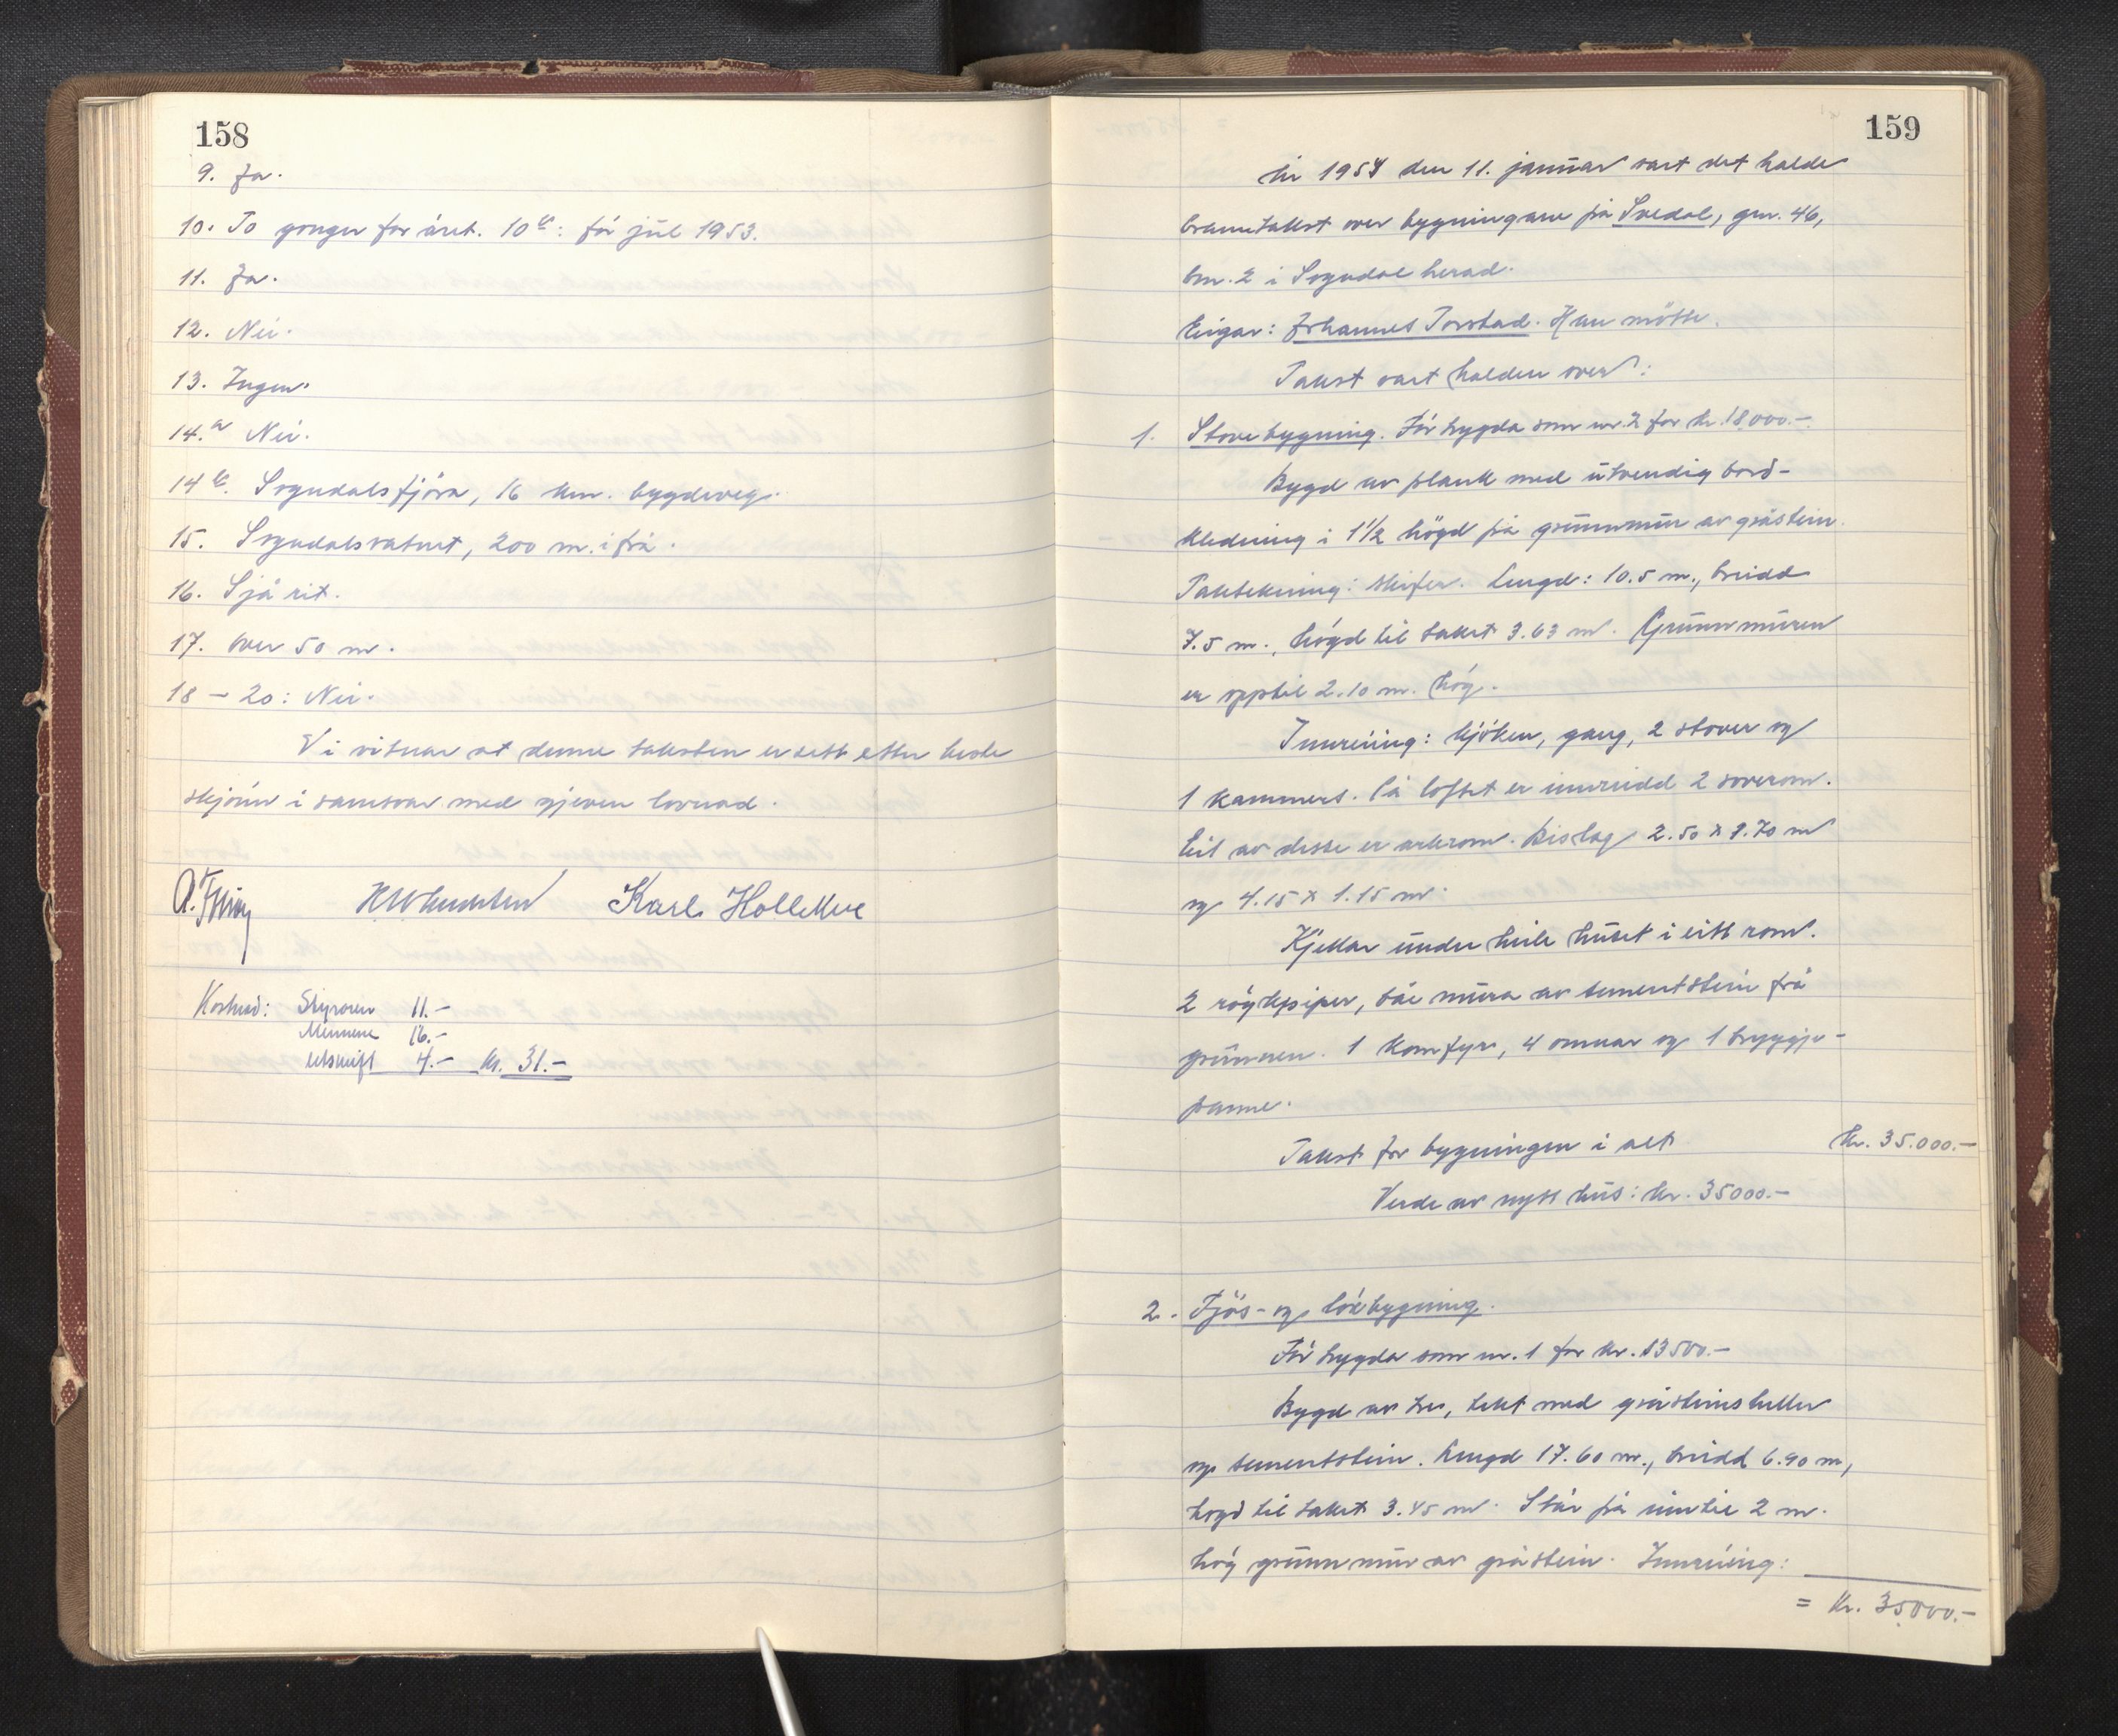 158
9. Ja.
10. To gongar for året. 10b: før jul 1953.
11. Ja.
12. Nei.
13. Ingen.
14.a Nei.
14b. Sogndalsfjøra, 16 km. bygdeveg.
15. Sogndalsvatnet, 200 m. ifrå.
16. Sjå rit.
17. Over 50 m.
18 – 20: Nei.
Vi vitnar at denne taksten er sett etter beste
skjønn i samsvar med gjeven lovnad.
Karl Hollekve
Kostnad: Styraren 11.–
Mennene 16.–
Utskrift 4.– kr. 31.–
159
År 1954 den 11. januar vart det halde
branntakst over bygningane på Svedal, gnr. 46,
bnr. 2 i Sogndal herad.
Eigar: Johannes Torstad. Han møtte.
Takst vart halden over:
1. Stovebygning. Før trygda som nr. 2 for kr. 18.000.–
Bygd av plank med utvendig bord-
kledning i 1 1/2 högd på grunnmur av gråstein.
Taktekning: skifer. Lengd: 10.5 m., breidd
7.5 m., høgd til taket 3.63 m. Grunnmuren
er opptil 2.10 m. høg.
Innreiing: kjøken, gang, 2 stover og
1 kammers. På loftet er innreidd 2 soverom.
Eit av desse er arkrom. Bislag 2.50 x 2.70 m
og 4.15 x 1.15 m.
Kjellar under heile huset i eitt rom.
2 røykpiper, båe mura av sementstein frå
grunnen. 1 komfyr, 4 omnar og 1 bryggje-
panne.
Takst for bygningen i alt kr. 35.000.–
Verde av nytt hus: kr. 35000.–
2. Fjøs- og løebygning.
Før trygda som nr. 1 for kr. 13500.–
Bygd av tre, tekt med gråsteinsheller
og sementstein. Lengd 17.60 m., breidd 6.90 m,
høgd til taket 3.45 m. Står på inntil 2 m.
høg grunnmur av gråstein. Innreiing:
= kr. 35000.–